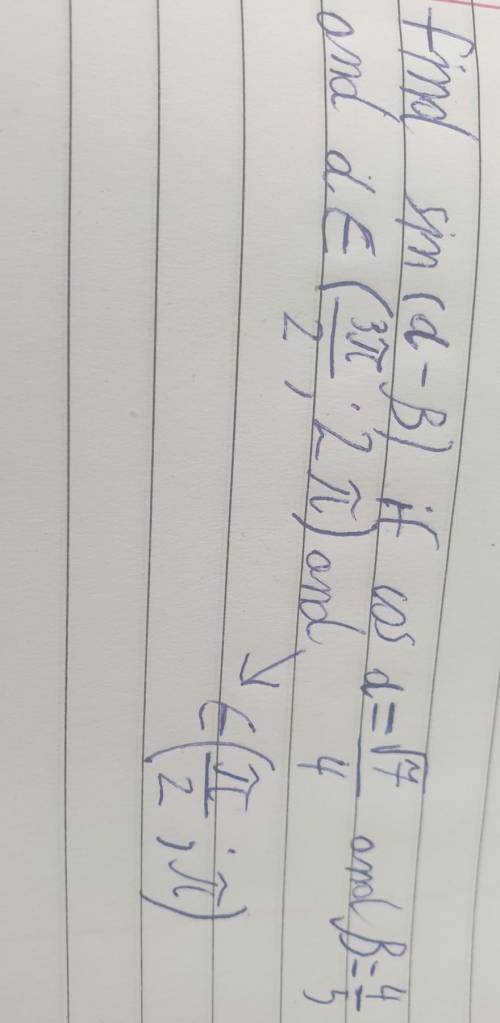 find sin(α-β) if cos α = √7/4 and β = 4/5
and α ∈ (3π/2 ; 2π) and
→ ∈ (π/2 ; π)